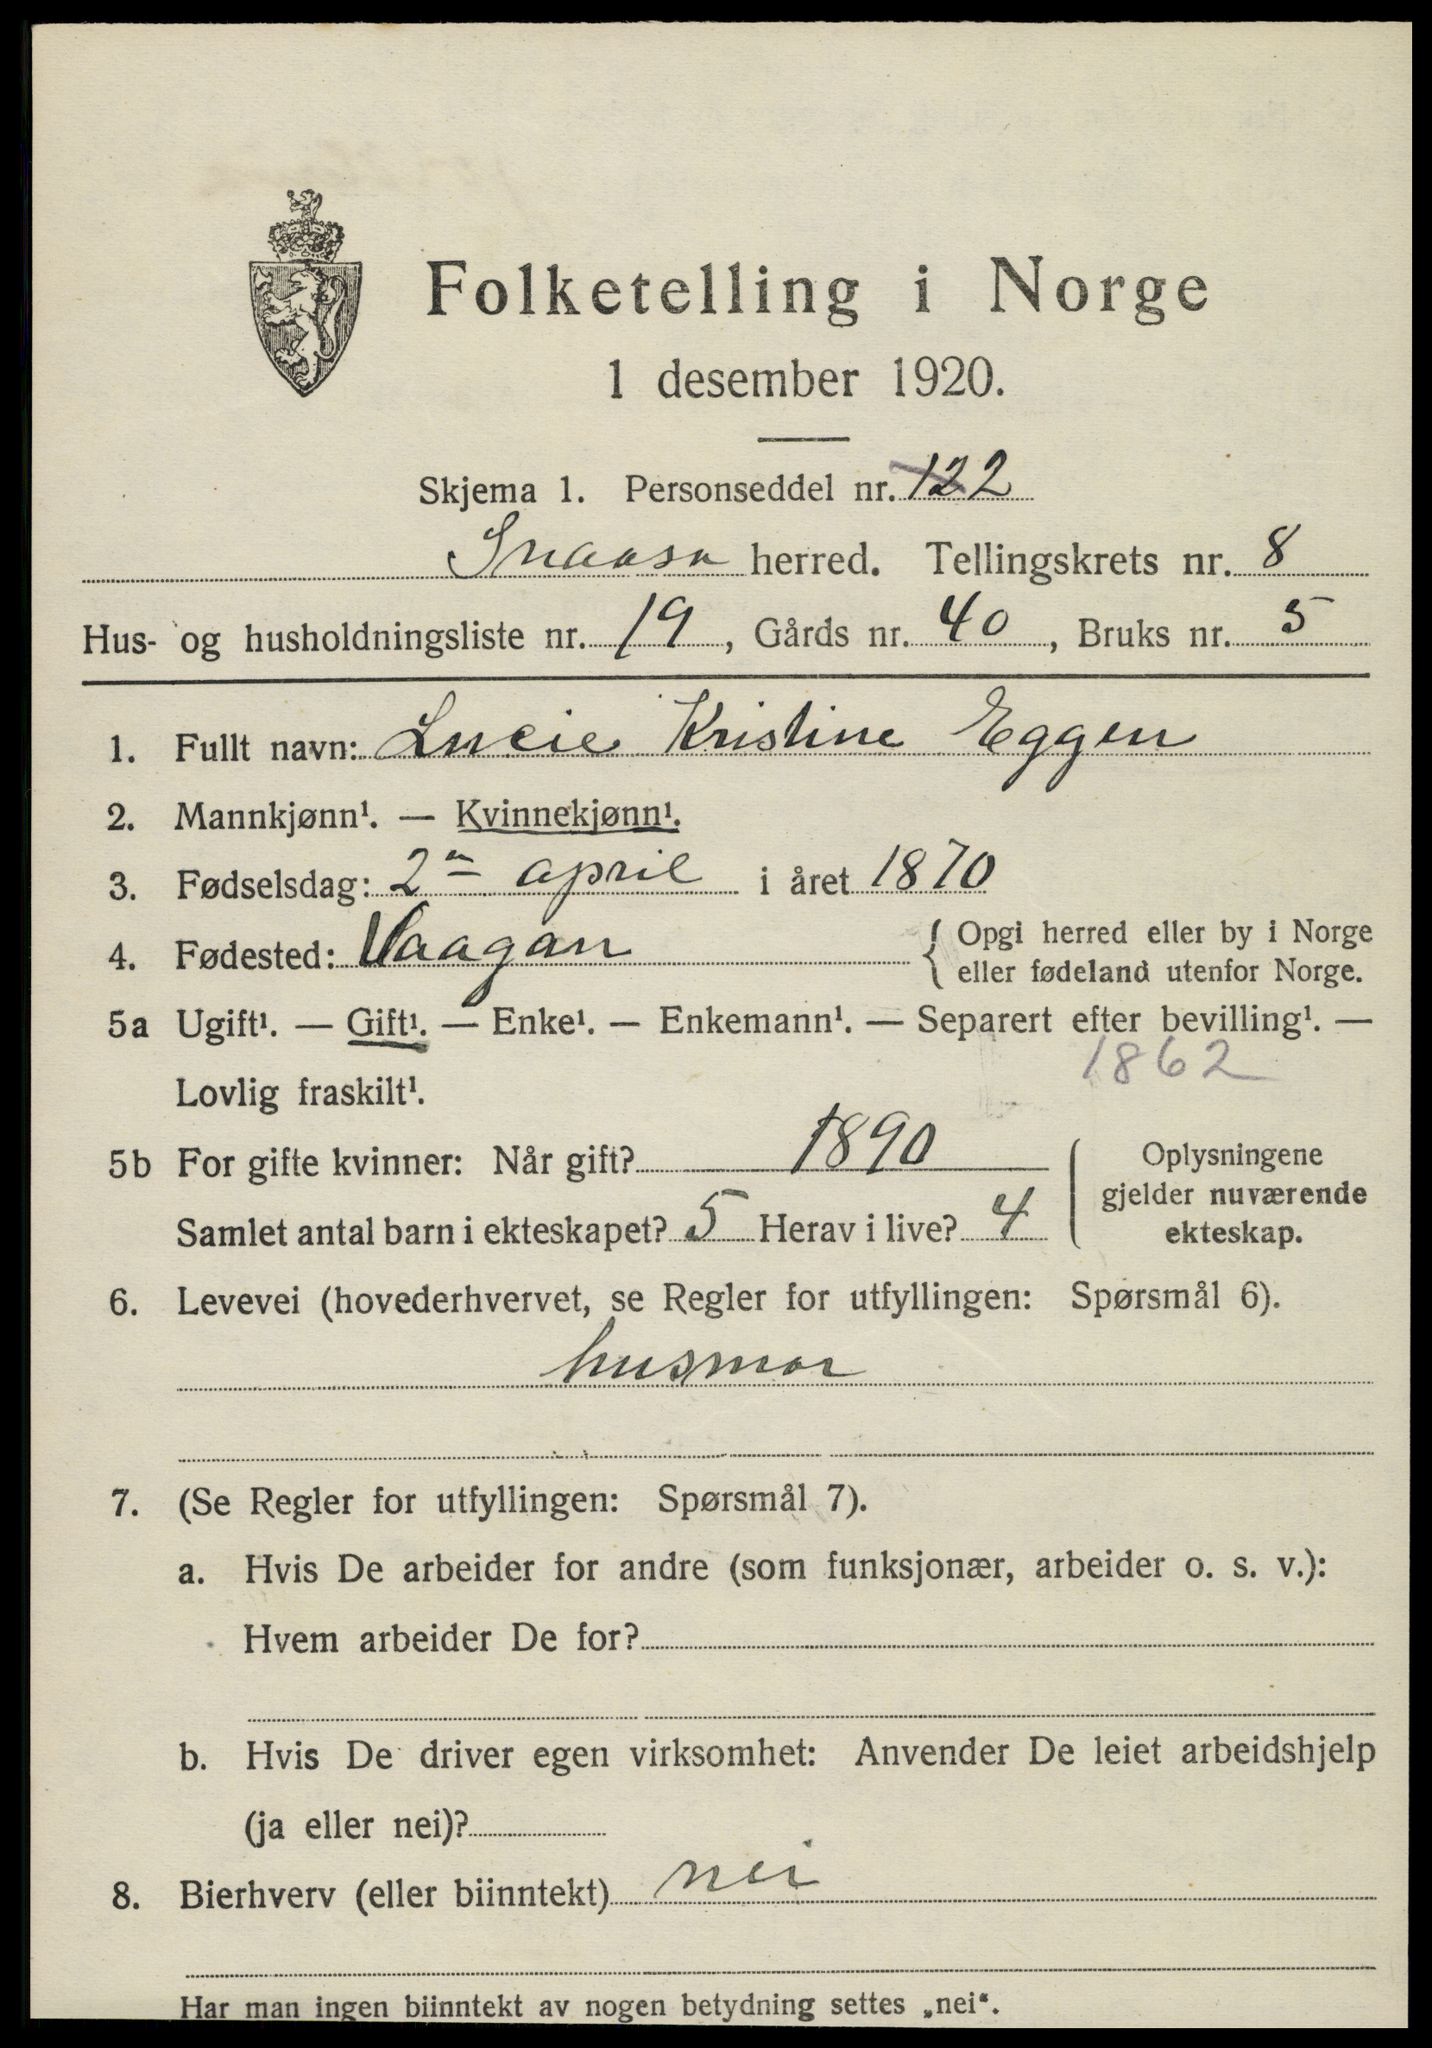 Folketelling i Norge
1 desember 1920.
Skjema 1. Personseddel nr. 122
Snaasa herred. Tellingskrets nr. 8
Hus- og husholdningsliste nr. 19, Gårds nr. 40, Bruks nr. 5
1. Fullt navn: Lucie Kristine Eggen
2. Mannkjønn¹. — Kvinnekjønn¹.
3. Fødselsdag: 2ⁿ april i året 1870
4. Fødested: Vaagan { Opgi herred eller by i Norge
eller fødeland utenfor Norge.
5a Ugift¹. — Gift¹. — Enke¹. — Enkemann¹. — Separert efter bevilling¹. —
1862
Lovlig fraskilt¹.
5b For gifte kvinner: Når gift? 1890
Samlet antal barn i ekteskapet? 5 Herav i live? 4
Oplysningene
gjelder nuværende
ekteskap.
6. Levevei (hovederhvervet, se Regler for utfyllingen: Spørsmål 6).
husmor
7. (Se Regler for utfyllingen: Spørsmål 7).
a. Hvis De arbeider for andre (som funksjonær, arbeider o. s. v.):
Hvem arbeider De for?
b. Hvis De driver egen virksomhet: Anvender De leiet arbeidshjelp
(ja eller nei)?
8. Bierhverv (eller biinntekt) nei
Har man ingen biinntekt av nogen betydning settes „nei“.